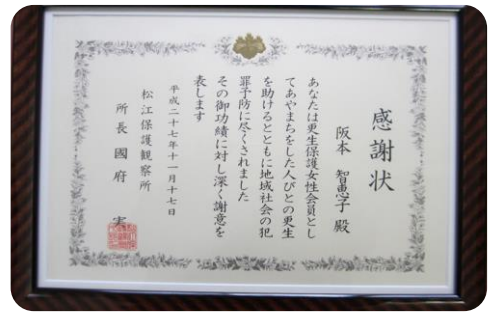 感謝状
阪本 智恵子 殿
あなたは更生保護女性会員とし
てあやまちをした人びとの更生
を助けるとともに地域社会の犯
罪予防に尽くされました
その御功績に対し深く謝意を
表します
平成二十七年十一月十七日
松江保護観察所
所長 國府 実